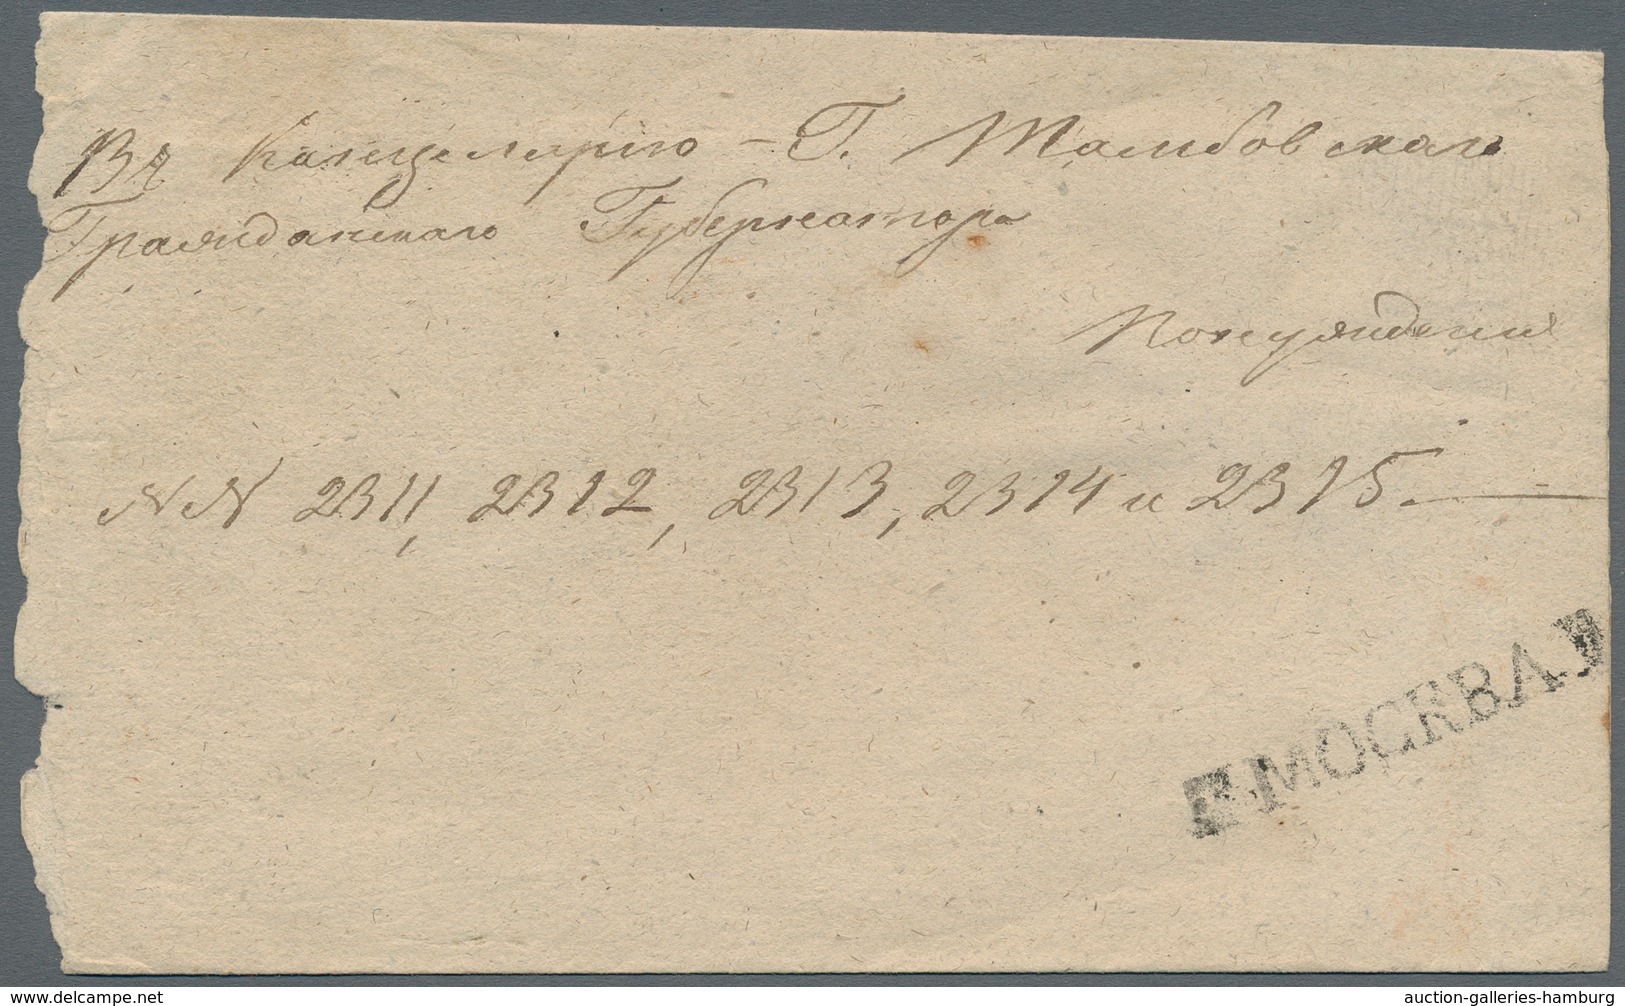 Въ Канцелярію – Г. Тамбовскаго
Гражданскаго Губернатора
NN 2311, 2312, 2313, 2314 и 2315.
МОСКВА
www.delcampe.net
auction-galleries-hamburg